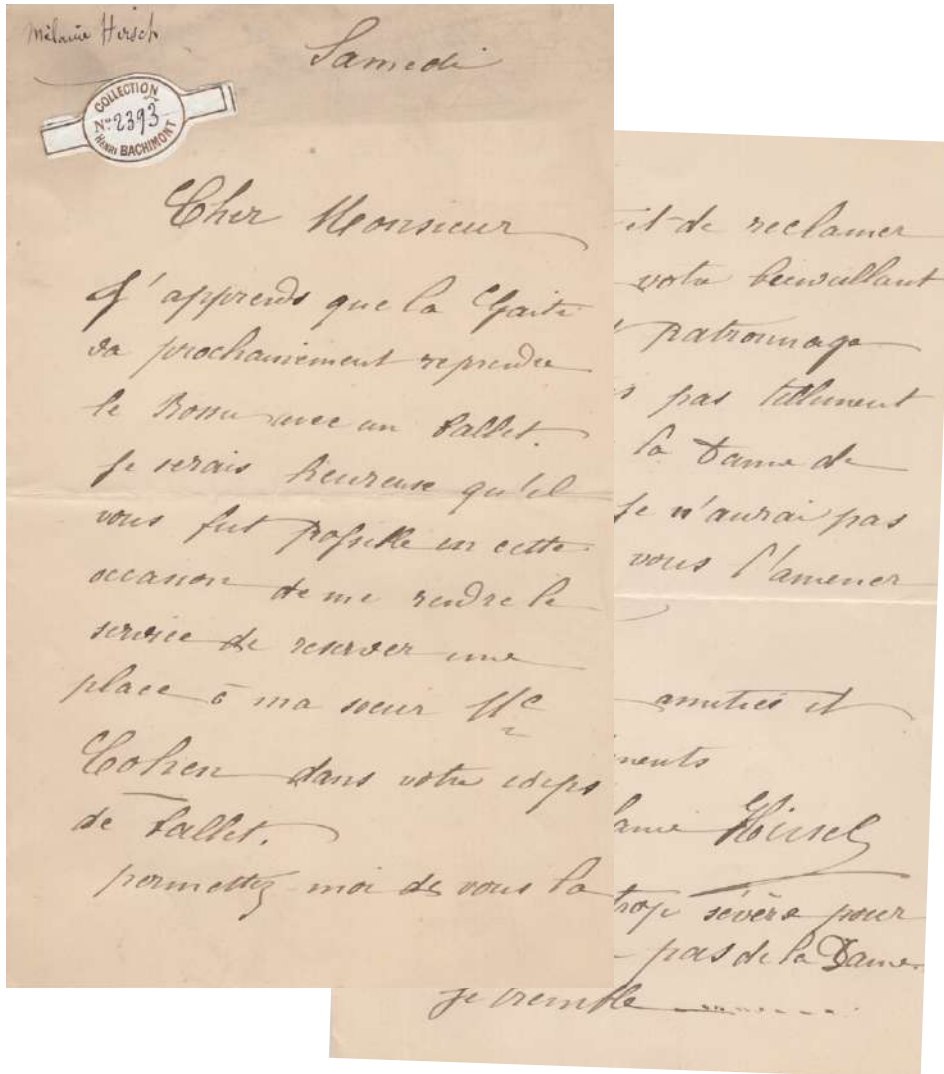 Mélanie Hirsch
Samedi
COLLECTION
No 2393
HENRI BACHIMONT
Cher Monsieur
J'apprends que la Gaité
va prochainement reprendre
le Bossu avec un ballet.
Je serais heureuse qu'il
vous fut possible en cette
occasion de me rendre le
service de reserver une
place à ma soeur Me
Cohen dans votre corps
de ballet.
permettez-moi de vous la
et de reclamer
votre bienveillant
patronnage
pas tellement
la Dame de
je n'aurai pas
vous l'amener
amitiés et
ments
lanie Hirsch
trop sévère pour
pas de la Dame
je tremble